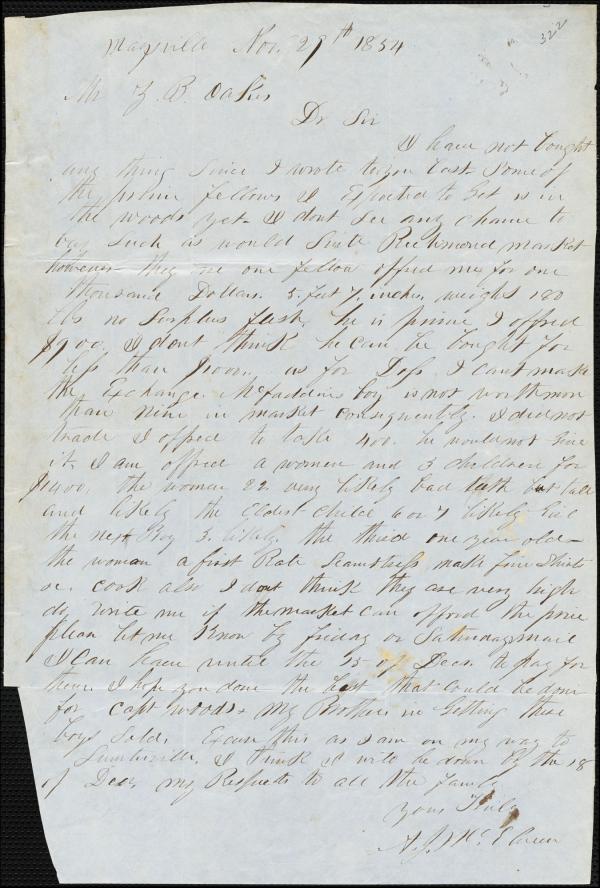 322
Maysville Nov. 29th 1854
Mr Z. B. Oakes
Dr Sir
I have not bought
any thing since I wrote to you last Some of
the prime fellows I Expected to Get is in
the woods yet I dont see any chance to
buy such as would Suit Richmond market
however they one fellow offred me for one
thousand Dollars 5 feet 7 inches weighs 180
lbs no Surplus flesh, he is prime I offred
$900. I dont think he can be bought for
less than $1000, as for Deps I cant make
the Exchange McFaddins boy is not worth more
than nine in market consequently I did not
trade I offred to take 400. he would not Give
it I am offred a women and 3 children for
$1400, the woman 22 very likely bad teeth but tall
and likely the oldest child 6 or 7 likely Girl
the next Boy 3 likely the third one year old
the woman a first Rate Seamstress make fine Shirts
or cook also I dont think they are very high
do write me if the market can afford the price
please let me Know by friday or Saturdays mail
I can have until the 15 of Decr to pay for
them I hope you done the best that could be done
for Capt Woods & My Brother in Getting these
boys Sold, Excuse this as I am on my way to
Sumterville, I think I will be down by the 18
of Decr, my Respects to all the family
yours Truly
A. J. McElveen